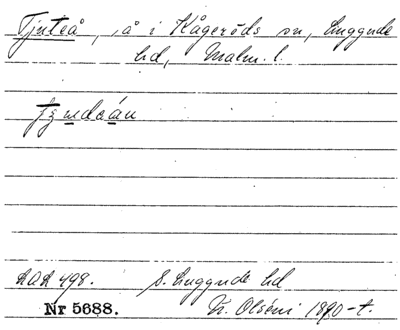 Tjuteå, å i Kågeröds sn, Luggude
hd, Malm. l.
LAL 498. S. Luggude hd
Nr 5688. N. Olséni 1890-t.